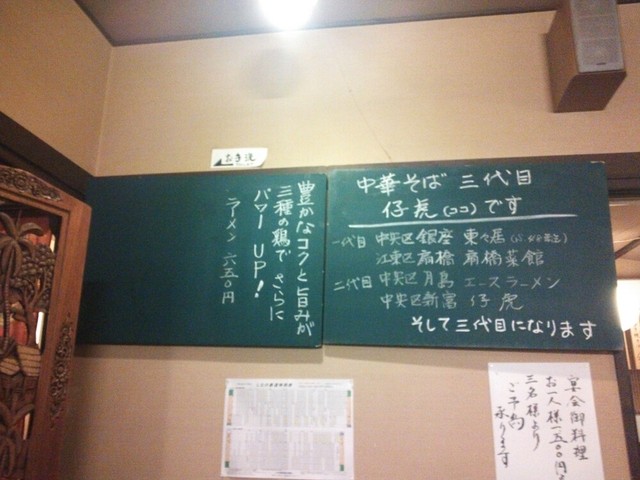 お手洗
豊かなコクと旨みが
三種の鶏で さらに
パワー UP!
ラーメン 六五〇円
中華そば 三代目
仔虎(ココ)です
一代目 中央区銀座 東々居
江東区扇橋 扇橋菜館
二代目 中央区月島 エースラーメン
中央区新富 仔虎
そして三代目になります
宴会御料理
お一人様一五〇〇円
三名様より
ご予約
承ります